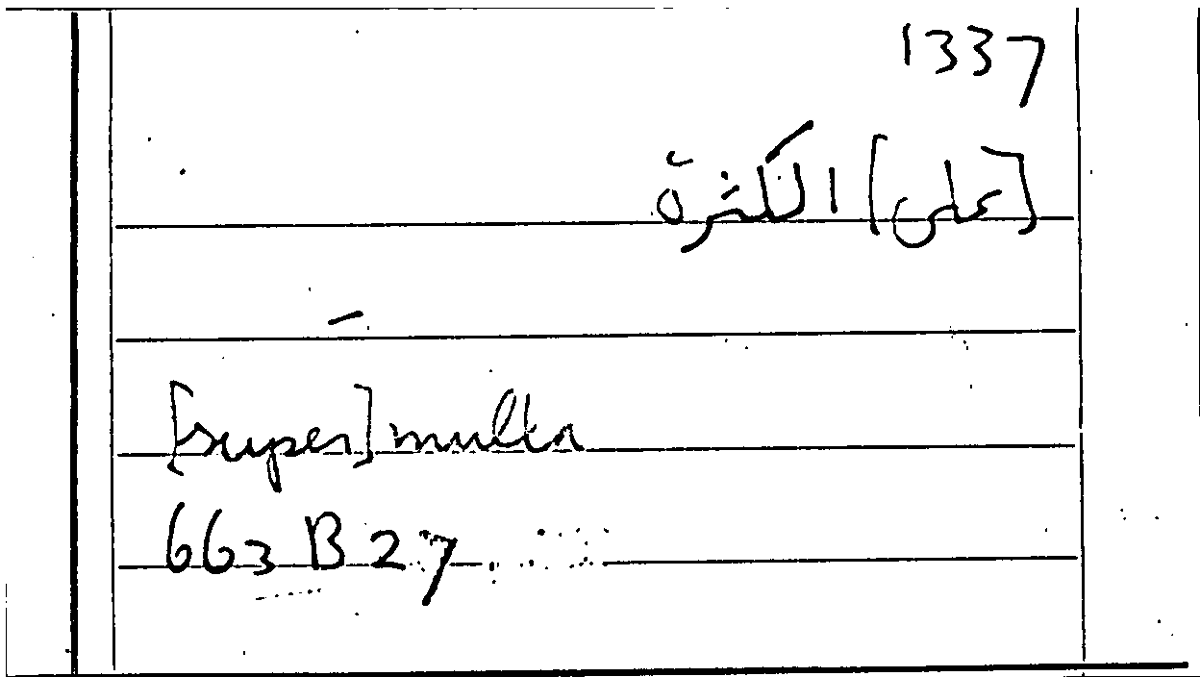 1337
[على] الكَثرة
—
[super] multa
663 B 27